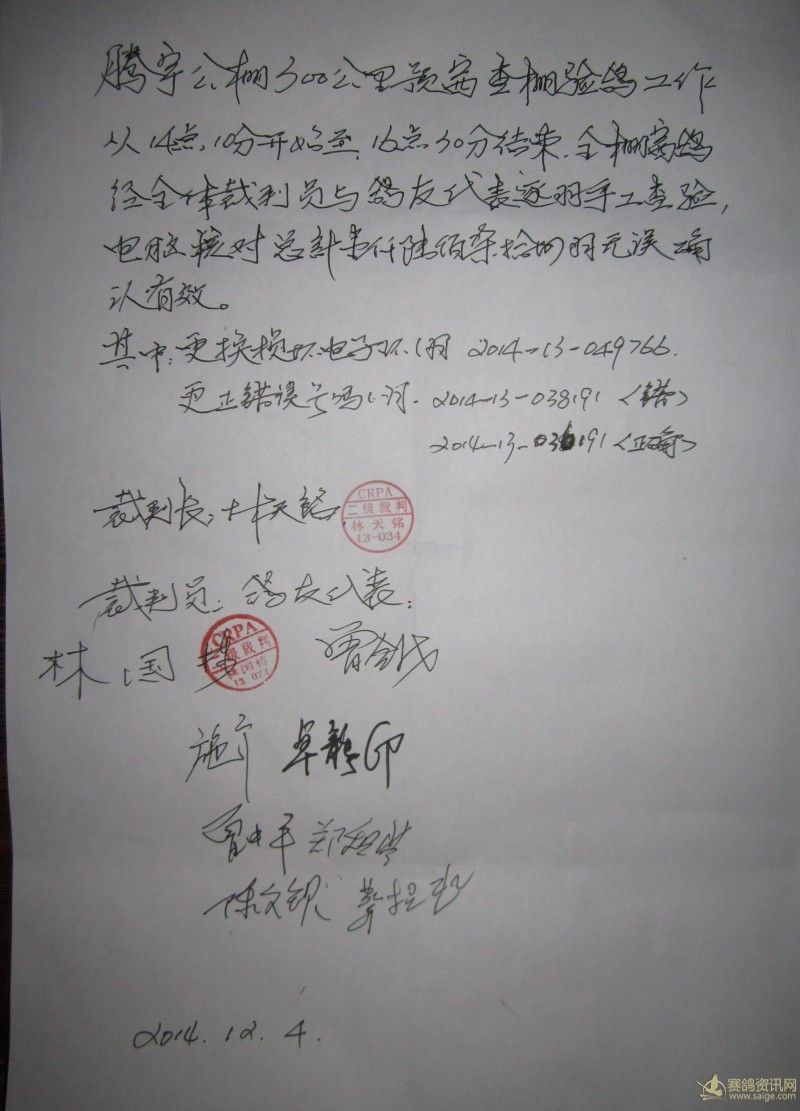 腾宇公棚300公里预赛查棚验鸽工作
从14点10分开始至16点30分结束.全棚赛鸽
经全体裁判员与鸽友代表逐羽手工查验,
电脑核对总计壹仟陆佰柒拾 羽无误确
认有效。
其中:更换损坏电子环1羽 2014-13-049766.
更正错误号码1羽.2014-13-038191<错>
2014-13-036191<正确>
裁判长:林天铭
CRPA
二级裁判
林天铭
13-034
裁判员:鸽友代表:
林国
CRPA
二级裁判
施
卓龙
曾中平 郑
陈文
2014.12.4.
赛鸽资讯网
www.saige.com